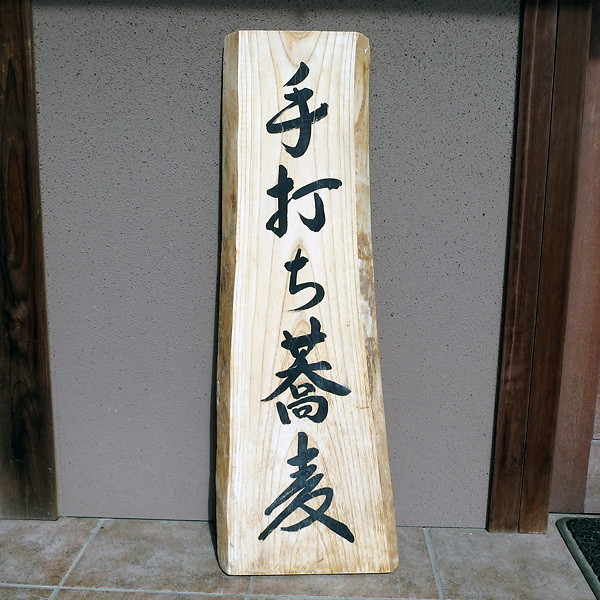 手打ち蕎麦